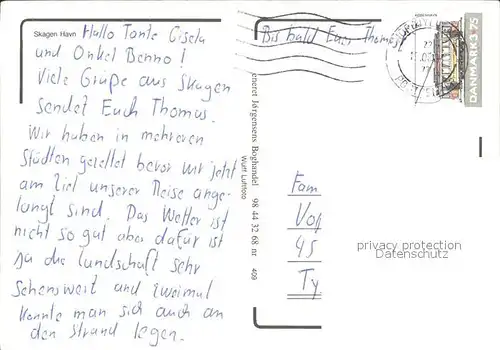 Skagen Havn
Hallo Tante Gisela
und Onkel Benno!
Viele Grüße aus Skagen
sendet Euch Thomas.
Wir haben in mehreren
Städten gezeltet bevor wir jetzt
am Ziel unserer Reise ange-
langt sind. Das Wetter ist
nicht so gut aber dafür ist
ja die Landschaft sehr
Sehenswert und zweimal
konnte man sich auch an
den Strand legen.
Bis bald Euer Thomas
eneret Jørgensens Boghandel 98 44 32 68 nr 409
Wulff Luftfoto
DANMARK 3.75
Fam
Vo
45
Ty
privacy protection
Datenschutz